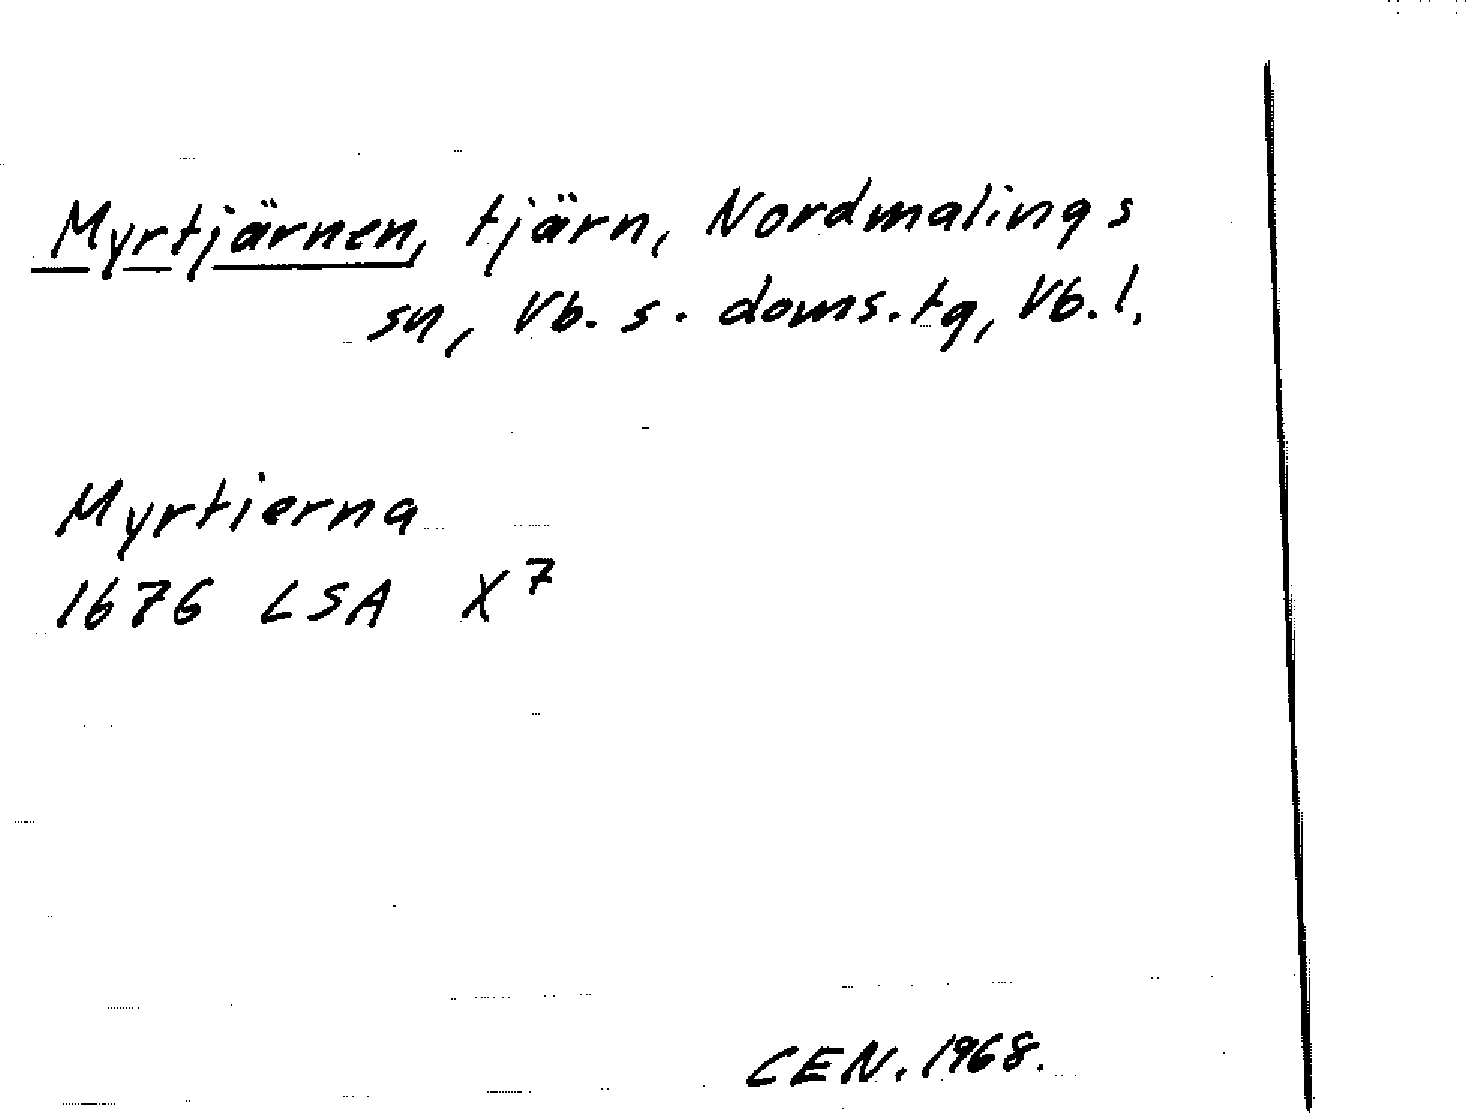 Myrtjärnen, tjärn, Nordmalings
sn, Vb. s. doms.tg, Vb. l.
Myrtierna
1676 LSA X7
CEN. 1968.